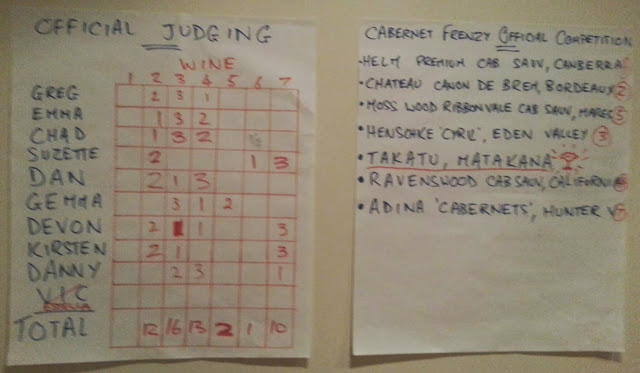 OFFICIAL JUDGING
WINE
1 2 3 4 5 6 7
GREG 2 3 1
EMMA 1 3 2
CHAD 1 3 2
SUZETTE 2 1 3
DAN 2 1 3
GEMMA 3 1 2
DEVON 2 1 3
KIRSTEN 2 1 3
DANNY 2 3 1
VIC
TOTAL 12 16 13 2 1 10
CABERNET FRENZY OFFICIAL COMPETITION
• HELM PREMIUM CAB SAUV, CANBERRA
• CHATEAU CANON DE BREM, BORDEAUX 2
• MOSS WOOD RIBBONVALE CAB SAUV, MARG 5
• HENSCHKE 'CYRIL', EDEN VALLEY 3
• TAKATU, MATAKANA
• RAVENSWOOD CAB SAUV, CALIFORNIA
• ADINA 'CABERNETS', HUNTER V